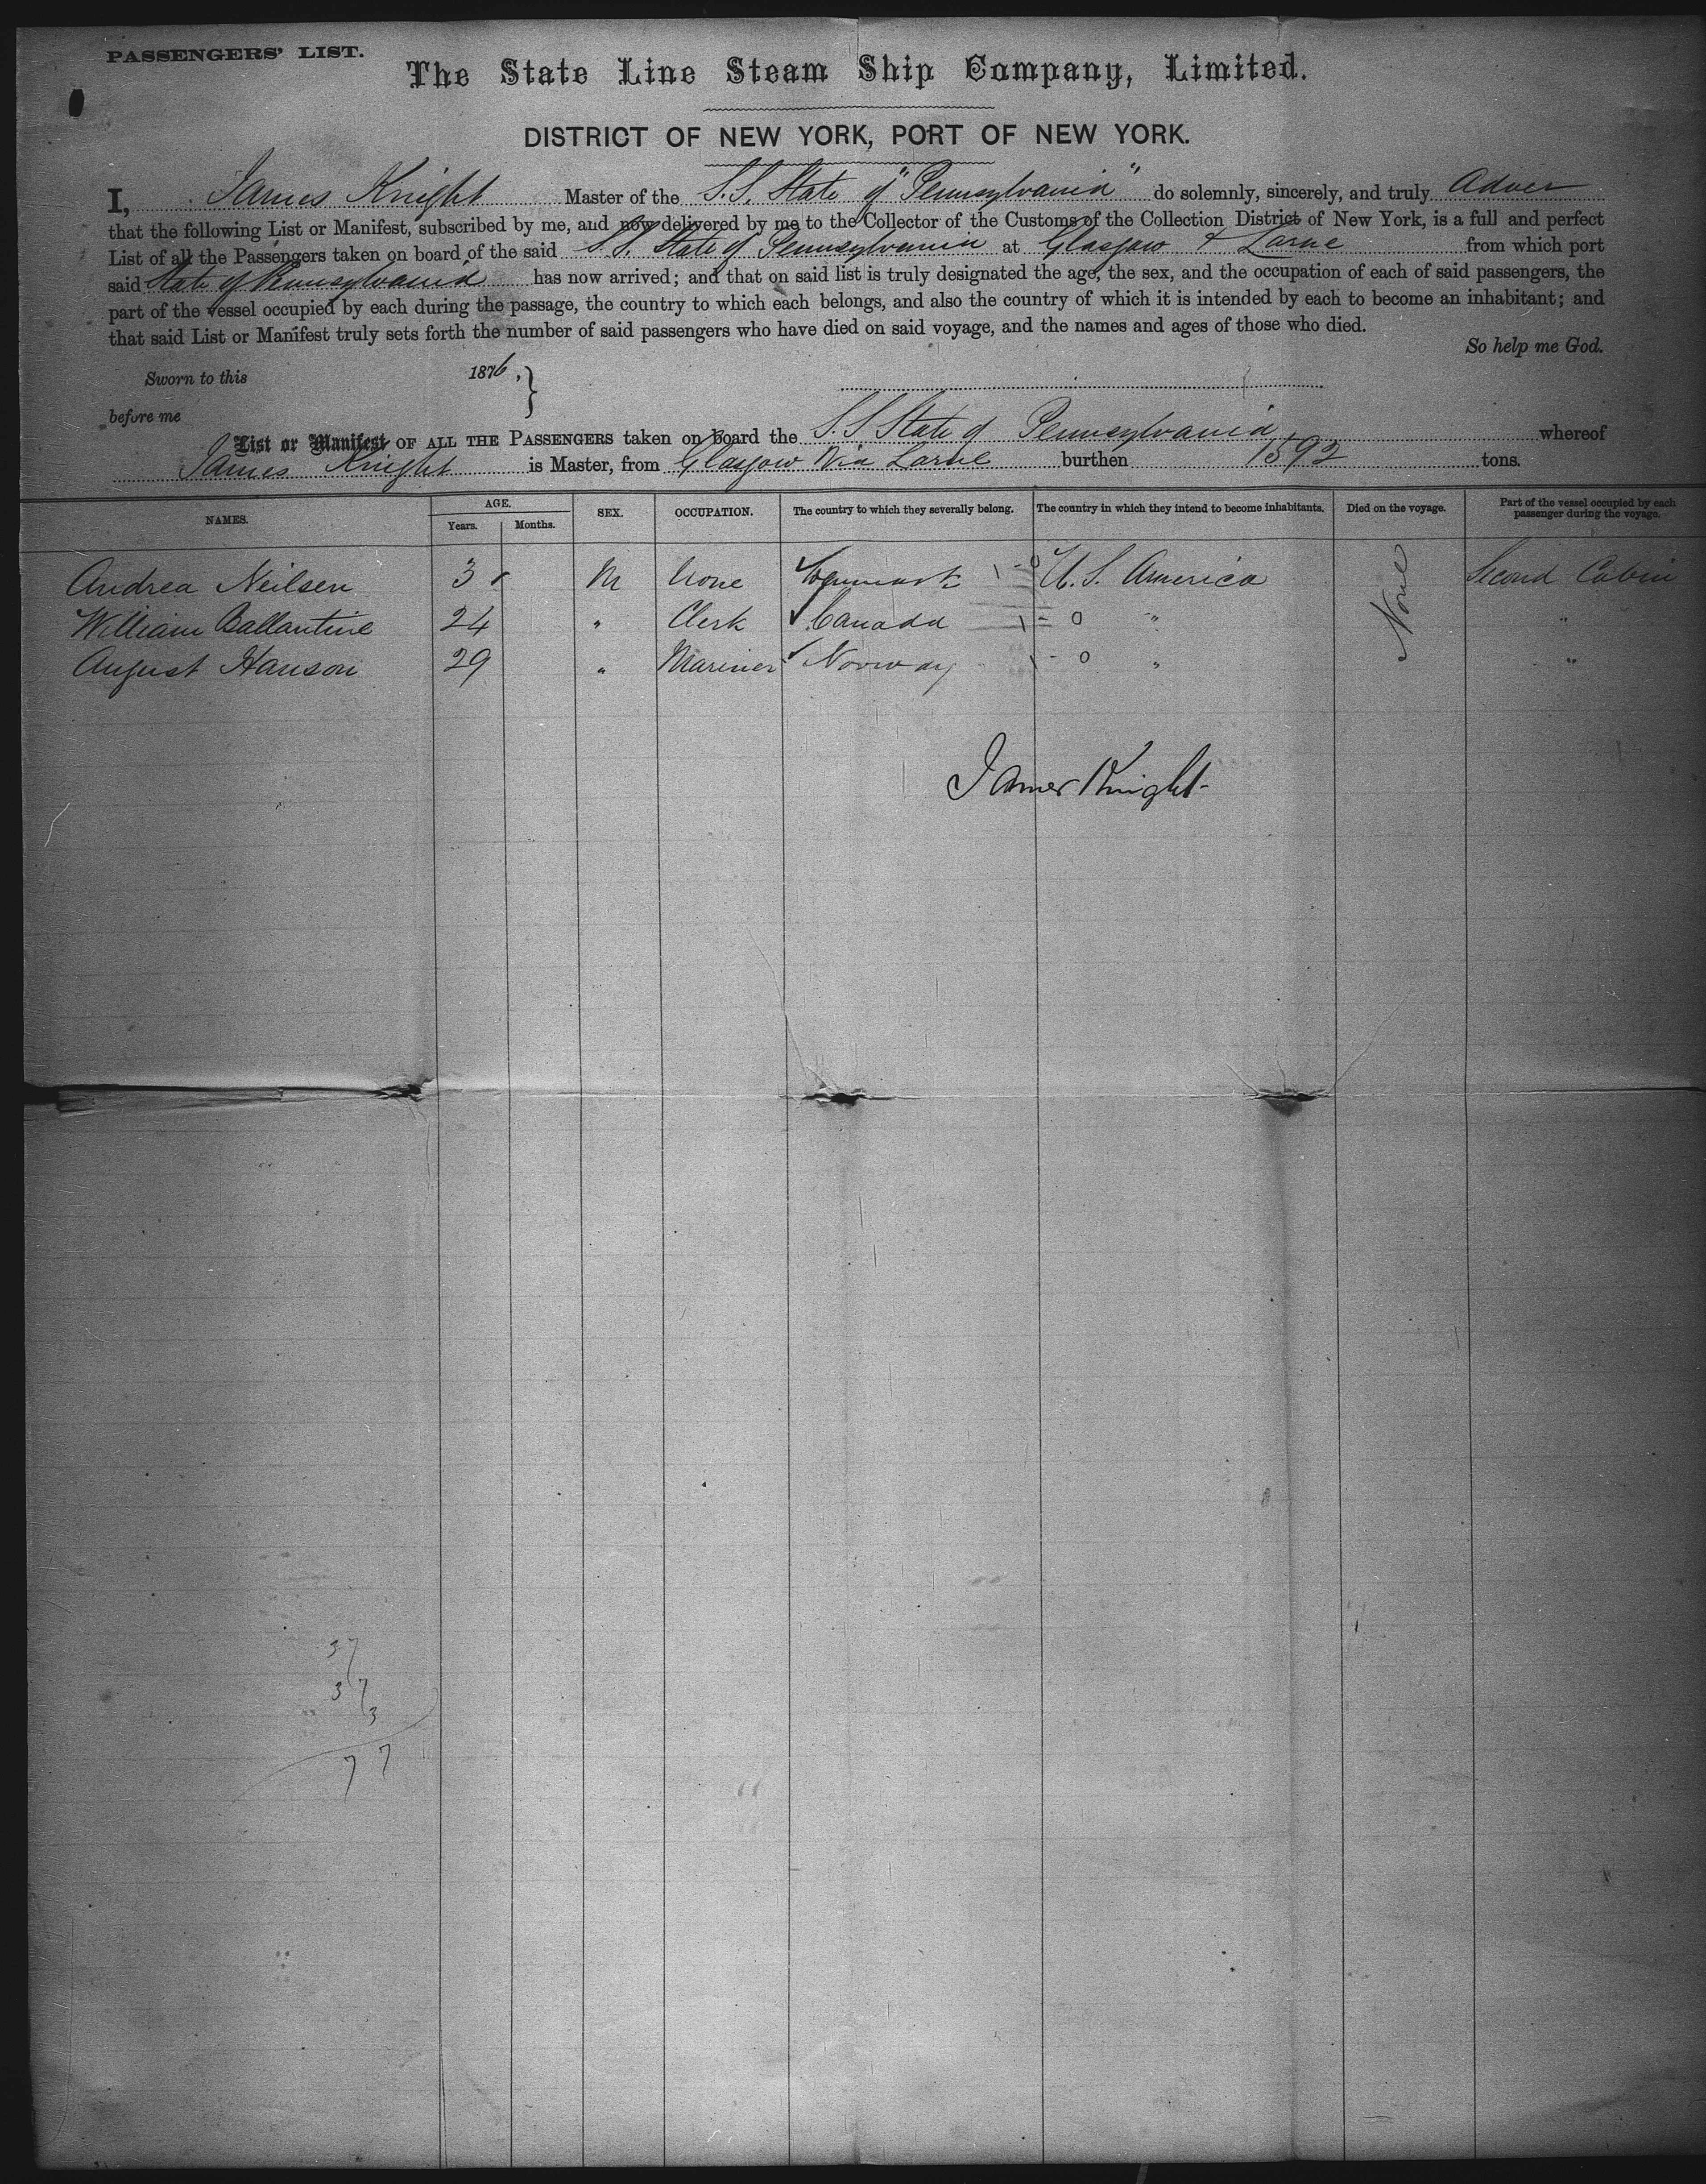 PASSENGERS' LIST.
The State Line Steam Ship Company, Limited.
DISTRICT OF NEW YORK, PORT OF NEW YORK.
I, James Knight Master of the S.S. State of "Pennsylvania" do solemnly, sincerely, and truly
that the following List or Manifest, subscribed by me, and now delivered by me to the Collector of the Customs of the Collection District of New York, is a full and perfect
List of all the Passengers taken on board of the said S.S. State of Pennsylvania at Glasgow & Larne from which port
said State of Pennsylvania has now arrived; and that on said list is truly designated the age, the sex, and the occupation of each of said passengers, the
part of the vessel occupied by each during the passage, the country to which each belongs, and also the country of which it is intended by each to become an inhabitant; and
that said List or Manifest truly sets forth the number of said passengers who have died on said voyage, and the names and ages of those who died.
So help me God.
Sworn to this 1876,
before me
List or Manifest OF ALL THE PASSENGERS taken on board the S.S State of Pennsylvania whereof
James Knight is Master, from Glasgow Via Larne burthen 1592 tons.
NAMES. AGE. Years. Months. SEX. OCCUPATION. The country to which they severally belong. The country in which they intend to become inhabitants. Died on the voyage. Part of the vessel occupied by each passenger during the voyage.
Andrea Neilsen 3 M None Denmark U.S. America None Second Cabin
William Ballantine 24 " Clerk Canada " "
August Hanson 29 " Mariner Norway " "
James Knight
37
37
3
77